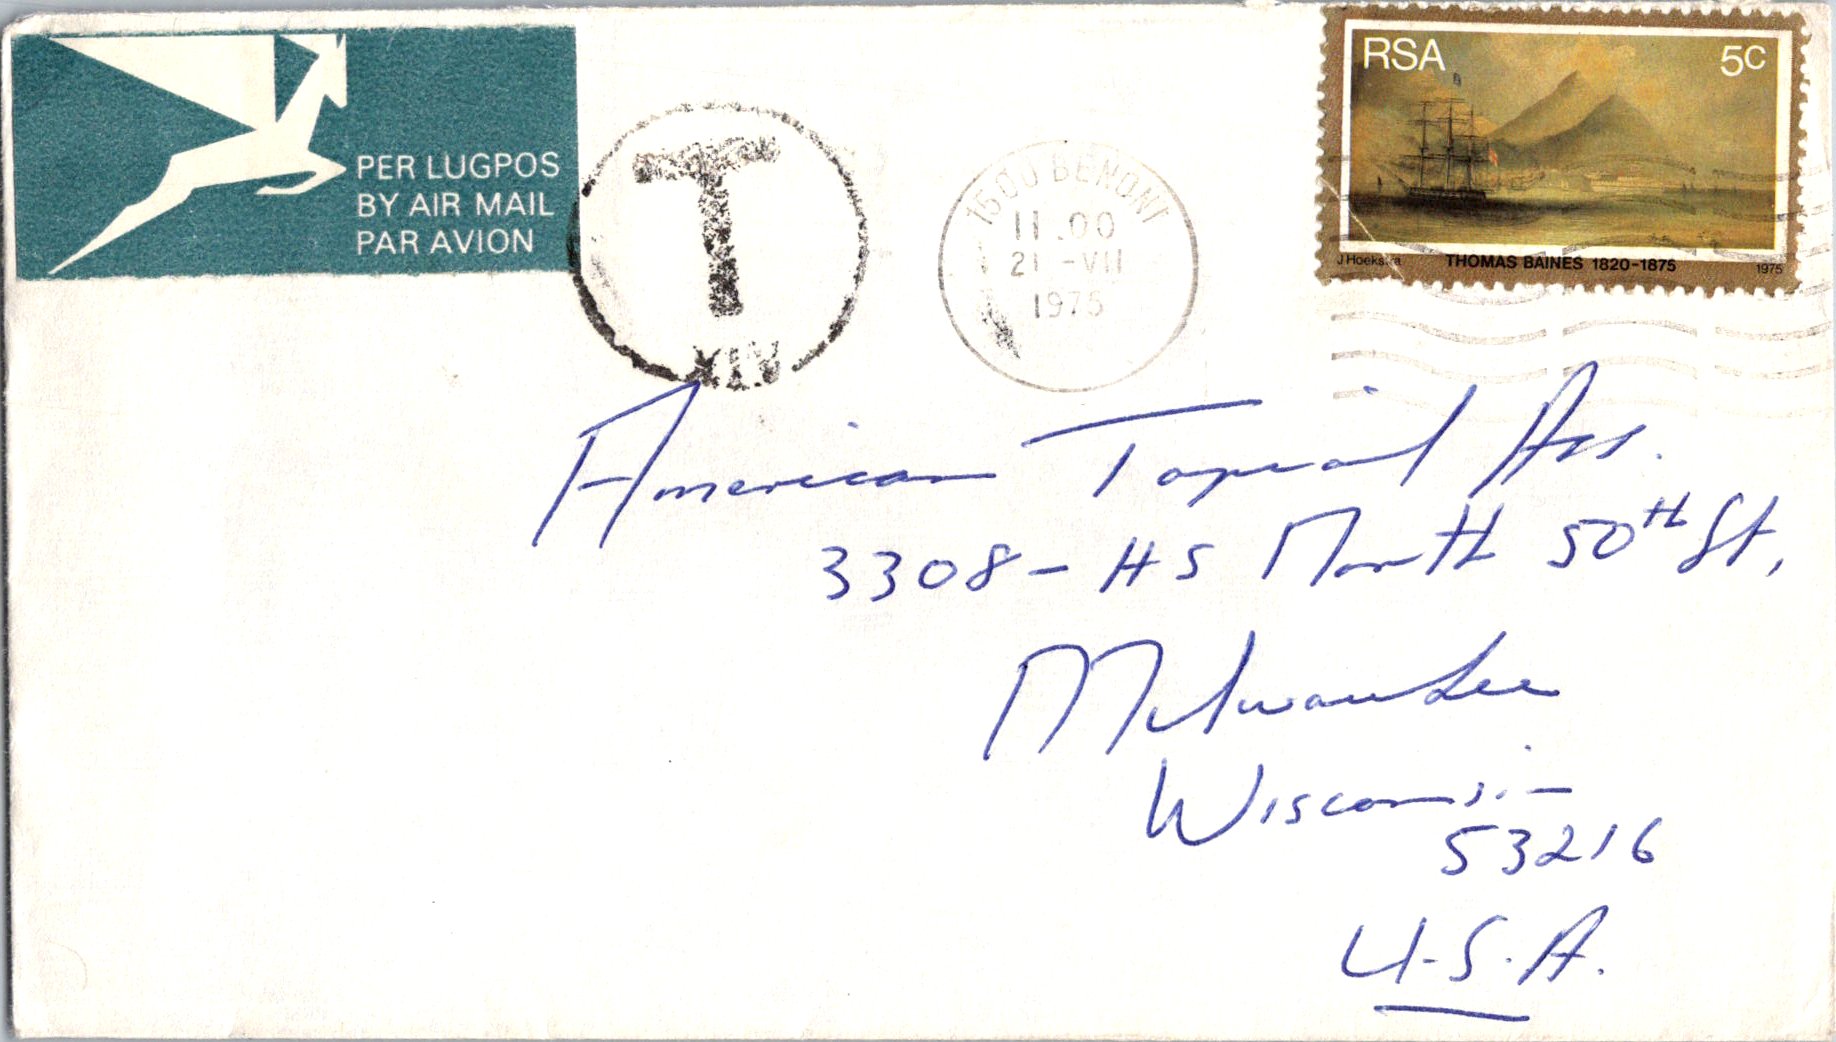 PER LUGPOS
BY AIR MAIL
PAR AVION
T
XIV
1500 BENONI
11.00
21 -VII
1975
RSA 5c
J Hoekstra THOMAS BAINES 1820-1875 1975
American Topical Ass.
3308 - HS North 50th St,
Milwaukee
Wisconsin
53216
U.S.A.